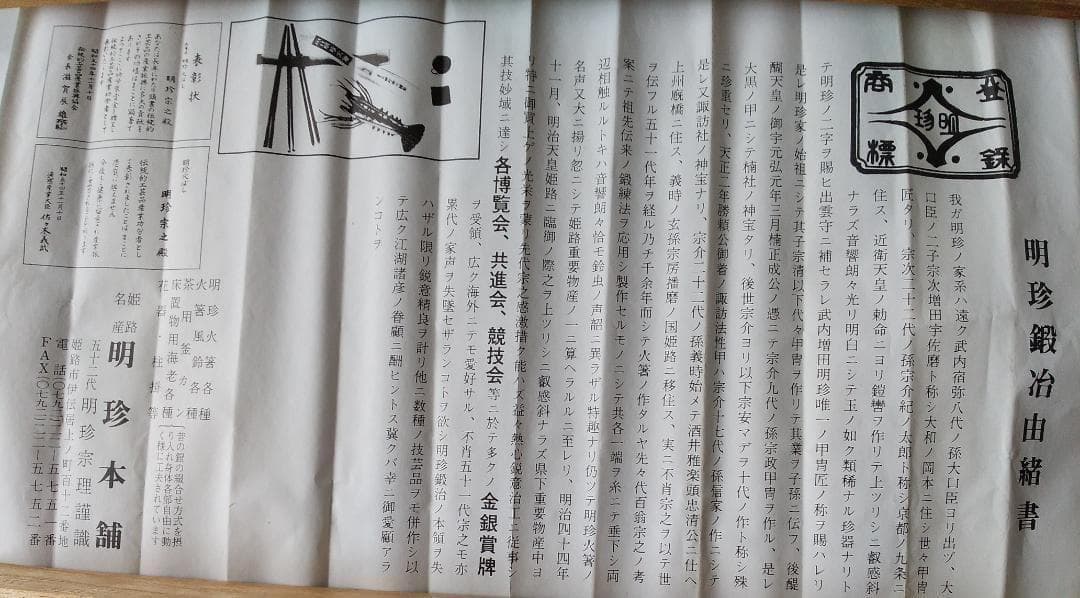 明珍鍛冶由緒書
登録
明珍
商標
我ガ明珍ノ家系ハ遠ク武内宿弥八代ノ孫大口臣ヨリ出ヅ、大
口臣ノ二子宗次増田宇佐磨ト称シ大和ノ岡本ニ住シ世々甲冑
匠タリ、宗次二十二代ノ孫宗介紀ノ太郎ト称シ京都ノ九条ニ
住ス、近衛天皇ノ勅命ニヨリ鎧轡ヲ作リテ上ツリシニ叡感斜
ナラズ音響朗々光リ明白ニシテ玉ノ如ク類稀ナル珍器ナリト
テ明珍ノ二字ヲ賜ヒ出雲守ニ補セラレ武内増田明珍唯一ノ甲冑匠ノ称ヲ賜ハレリ
是レ明珍家ノ始祖ニシテ其子宗清以下代々甲冑ヲ作リテ其業ヲ子孫ニ伝フ、後醍
醐天皇ノ御宇元弘元年三月楠正成公ノ憑ニテ宗介九代ノ孫宗政甲冑ヲ作ル、是レ
大黒ノ甲ニシテ楠社ノ神宝タリ、後世宗介ヨリ以下宗安マデヲ十代ノ作ト称シ殊
ニ珍重セリ、天正二年勝頼公御着ノ諏訪法性甲ハ宗介十七代ノ孫信家ノ作ニシテ
是レ又諏訪社ノ神宝ナリ、宗介二十二代ノ孫義時始メテ酒井雅楽頭忠清公ニ仕ヘ
上州厩橋ニ住ス、義時ノ玄孫宗房播磨ノ国姫路ニ移住ス、実ニ不肖宗之ヲ以テ世
ヲ伝フル五十一代年ヲ経ル乃チ千余年而シテ火箸ノ作タルヤ先々代百翁宗之ノ考
案ニテ祖先伝来ノ鍛練法ヲ応用シ製作セルモノニシテ共各一端ヲ糸ニテ垂下シ両
辺相触ルルトキハ音響朗々恰モ鈴虫ノ声韶ニ異ラザル特趣ナリ仍ツテ明珍火箸ノ
名声又大ニ揚リ忽ニシテ姫路重要物産ノ一ニ算ヘラルルニ至レリ、明治四十四年
十一月、明治天皇姫路ニ臨御ノ際之ヲ上ツリシニ叡感斜ナラズ県下重要物産中ヨ
リ特ニ御買上ゲノ光栄ヲ蒙リ先代宗之感激措ク能ハズ益々熱心鋭意治工ニ従事シ
其技妙域ニ達シ各博覧会、共進会、競技会等ニ於テ多クノ金銀賞牌
ヲ受領、広ク海外ニテモ愛好サル、不肖五十一代宗之モ亦
累代ノ家声ヲ失墜セザランコトヲ欲シ明珍鍛治ノ本領ヲ失
ハザル限リ鋭意精良ヲ計リ他ニ数種ノ技芸品ヲモ併作シ以
テ広ク江湖諸彦ノ眷顧ニ酬ヒントス冀クバ幸ニ御愛顧アラ
ンコトヲ
表彰状
明珍宗之殿
昭和五十四年十一月十日
明珍宗之殿
昭和五十四年十一月十日
明珍火箸各種
火箸風鈴各種
茶用釜カン
床置物用海老各種
花器・柱掛等
昔の鎧の組合せ方式を摂
り入れ身体各部自由に動
く様に工夫されています
姫路
名産
明珍本舗
五十二代明珍宗理謹識
姫路市伊伝居上ノ町百十二番地
電話〇七九二―二二―五七五一番
FAX〇七九二―二二―五七五二番